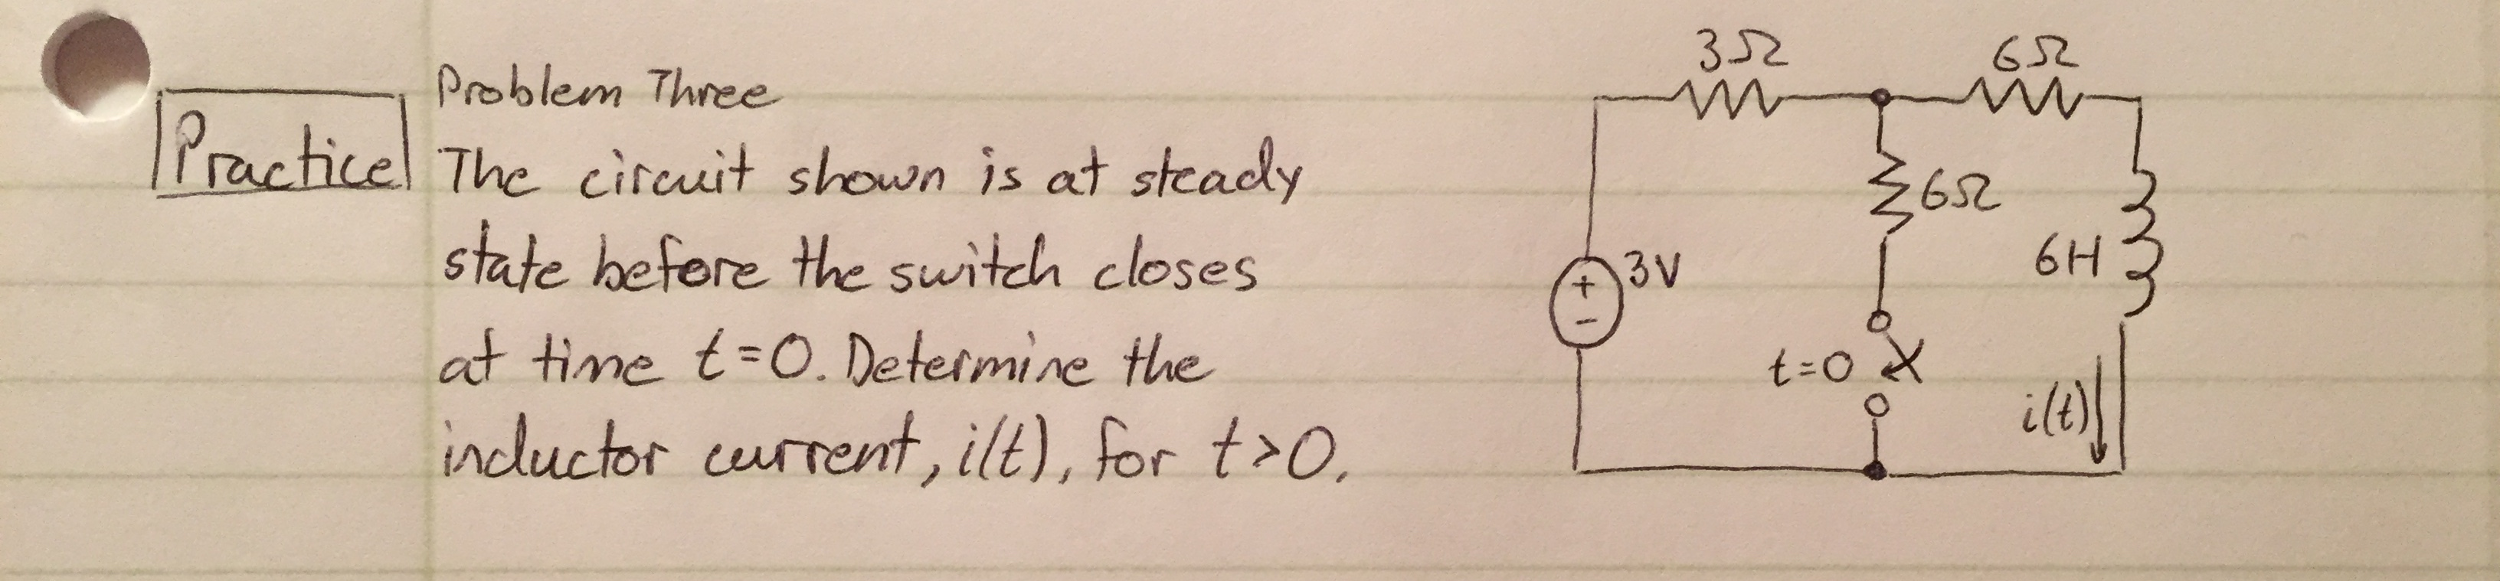 Problem Three
Practice
The circuit shown is at steady
state before the switch closes
at time t=0. Determine the
inductor current, i(t), for t>0.
3Ω
6Ω
6Ω
+
-
3V
6H
t=0
i(t)